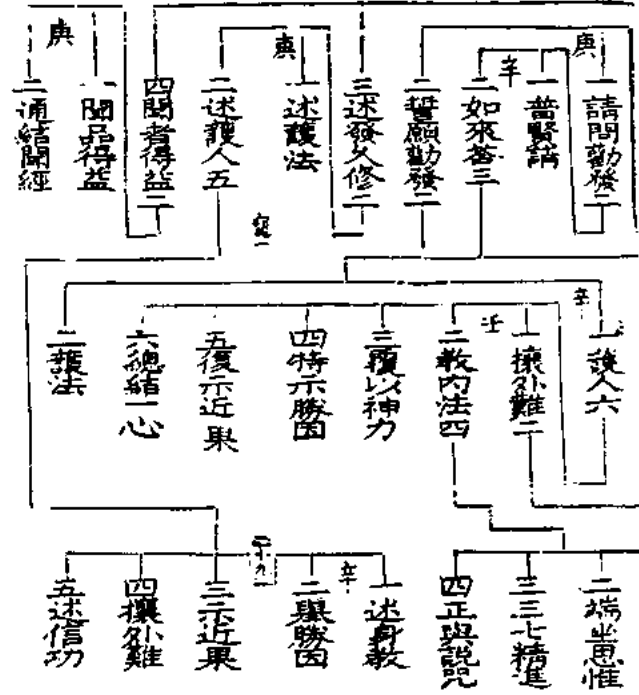 庚
一請問勸發二
一普賢請
辛
二如來荅三
二誓願勸發二
三述發久修二
庚
一述護法
二述護人五
四聞者得益二
庚
一聞品得益
二通結聞經
辛
一護人六
一攘外難二
壬
二教內法四
三覆以神力
四特示勝因
五復示近果
六總結一心
二護法
二端坐思惟
三三七精進
四正與說咒
一述身教
辛
二與勝因
三示近果
四攘外難
五述信功